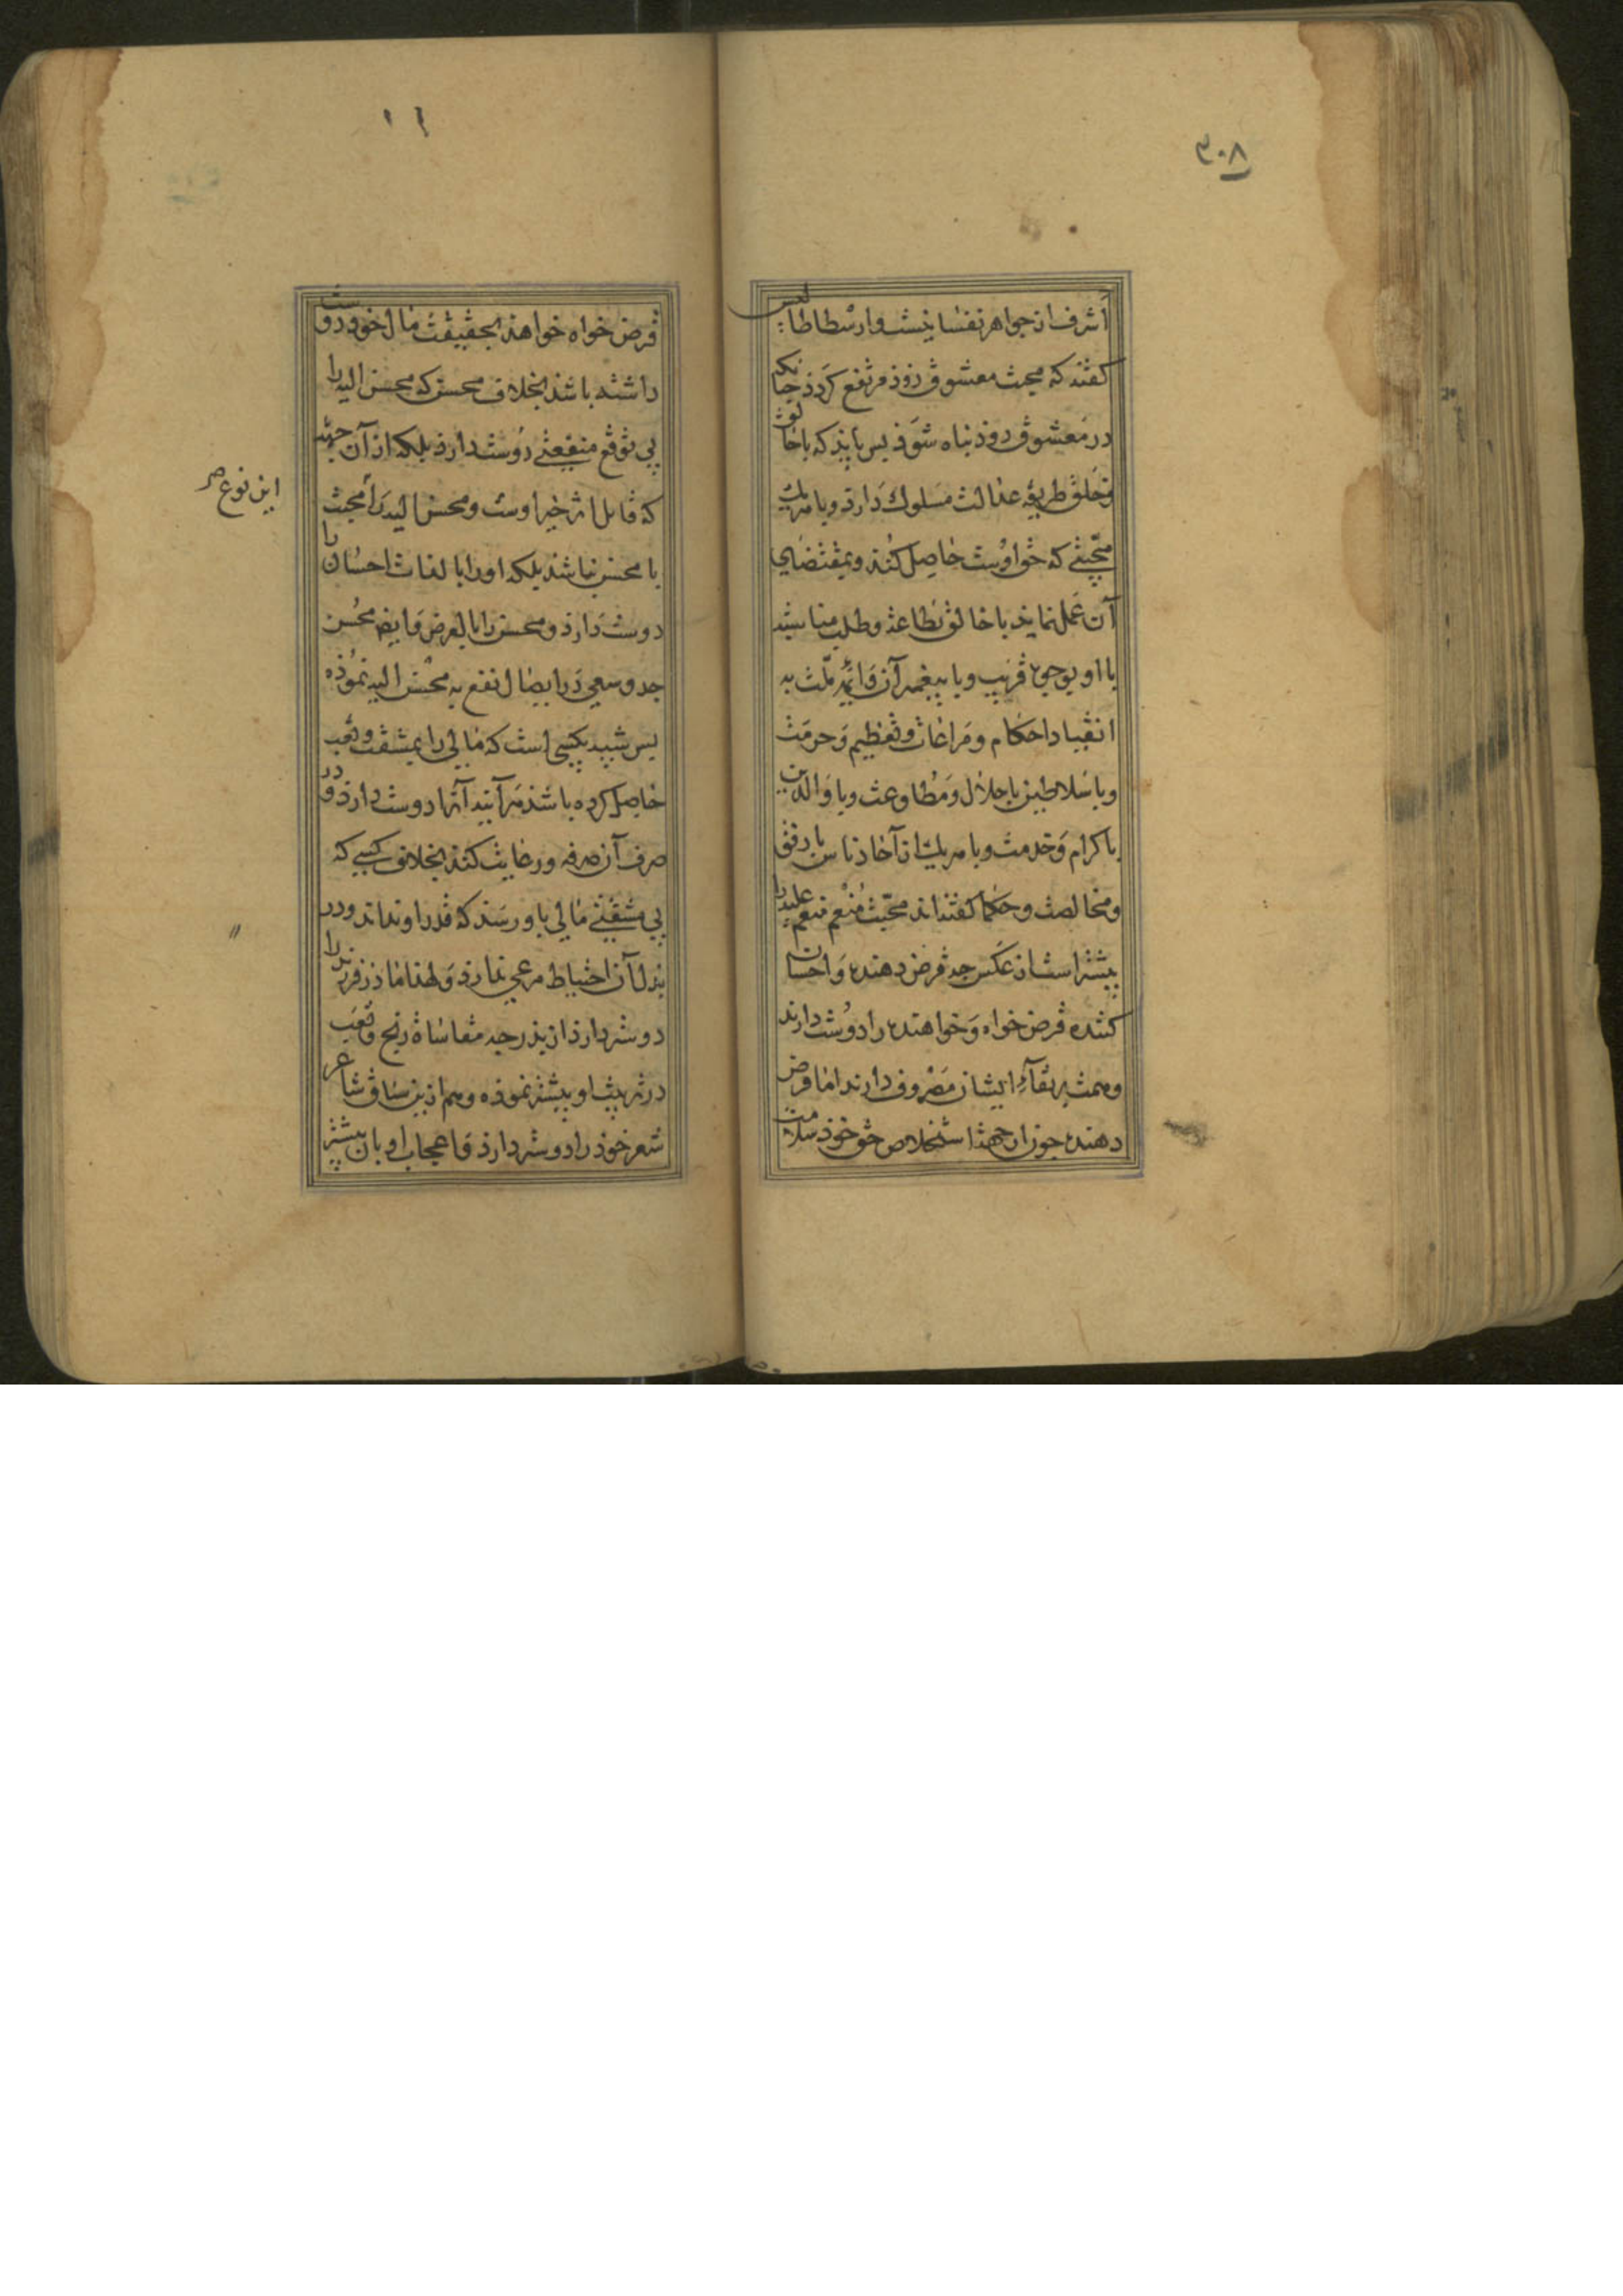 ٣٠٨
اشرف از جواهر نفسانیست و ارسطاطالیس
گفته که محبت معشوق زوذ مرتفع کردذ چنانکه
در معشوق زوذ تباه شوذ بس بایذ که با خالق
و خلق طریقه عدالت مسلوک دارذ و با هر یک
محبتی که حق اوست حاصل کند و بمقتضای
آن عمل نمایذ با خالق بطاعة و طلب مناسبة
با او بوجوه قریب و با پیغمبر آن و ائمه ملت به
انقیاد احکام و مراعات و تعظیم و حرمت
و با سلاطین باجلال و مطاوعت و با والدین
باکرام و خدمت و با هر یک از آحاد ناس با رفق
و مخالصت و حکما گفته اند محبت منعم منعم علیه را
بیشتر است از عکس جه قرض دهنده و احسان
کننده قرض خواه و خواهنده را دوست دارند
و همت بر بقآء ایشان مصروف دارند اما قرض
دهنده جون از جهة استخلاص حق خوذ سلامت
قرض خواه خواهد بحقیقت مال خوذ دوست
داشته باشذ بخلاف محسن که محسن الیه را
بی توقع منفعتی دوست دارذ بلکه از آن جهة
که قابل اثر خیر اوست و محسن الیه را محبت
این نوع صر
با محسن نباشذ بلکه او را بالذات احسان را
دوست دارذ و محسن را بالعرض و ایضا محسن
جد و سعی در ایصال نفع به محسن الیه نموذه
بس شبیه بکسی است که مالی را بمشقت و تعب
حاصل کرده باشذ هر آینه آنرا دوست دارذ و در
صرف آن صرفه و رعایت کنذ بخلاف کسی که
بی مشقتی مالی باو رسذ که قدر او نداند و در
بذل آن احتیاط مرعی ندارذ و لهذا ماذر فرزند را
دوستر دارذ از بذر جه مقاساة رنج و تعب
در تربیت او بیشتر نموذه و هم ازین سیاق شاعر
شعر خوذ را دوستر دارذ و اعجاب او بان بیشتر